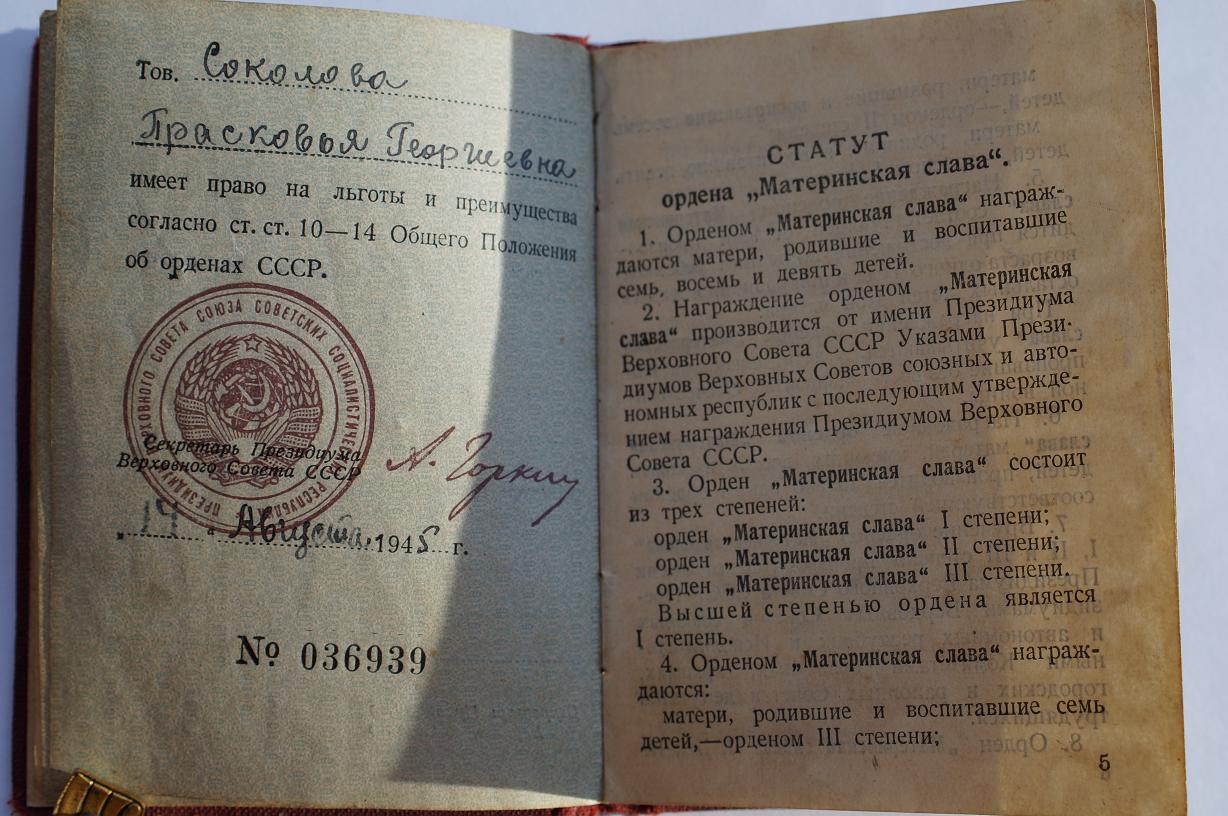 Тов. Соколова
Прасковья Георгиевна
имеет право на льготы и преимущества
согласно ст. ст. 10—14 Общего Положения
об орденах СССР.
ПРЕЗИДИУМ ВЕРХОВНОГО СОВЕТА СОЮЗА СОВЕТСКИХ СОЦИАЛИСТИЧЕСКИХ РЕСПУБЛИК
Секретарь Президиума
Верховного Совета СССР
А. Горкин
„14“ Августа 1945 г.
№ 036939
СТАТУТ
ордена „Материнская слава“.
1. Орденом „Материнская слава“ награж-
даются матери, родившие и воспитавшие
семь, восемь и девять детей.
2. Награждение орденом „Материнская
слава“ производится от имени Президиума
Верховного Совета СССР Указами Прези-
диумов Верховных Советов союзных и авто-
номных республик с последующим утвержде-
нием награждения Президиумом Верховного
Совета СССР.
3. Орден „Материнская слава“ состоит
из трех степеней:
орден „Материнская слава“ I степени;
орден „Материнская слава“ II степени;
орден „Материнская слава“ III степени.
Высшей степенью ордена является
I степень.
4. Орденом „Материнская слава“ награж-
даются:
матери, родившие и воспитавшие семь
детей,—орденом III степени;
5